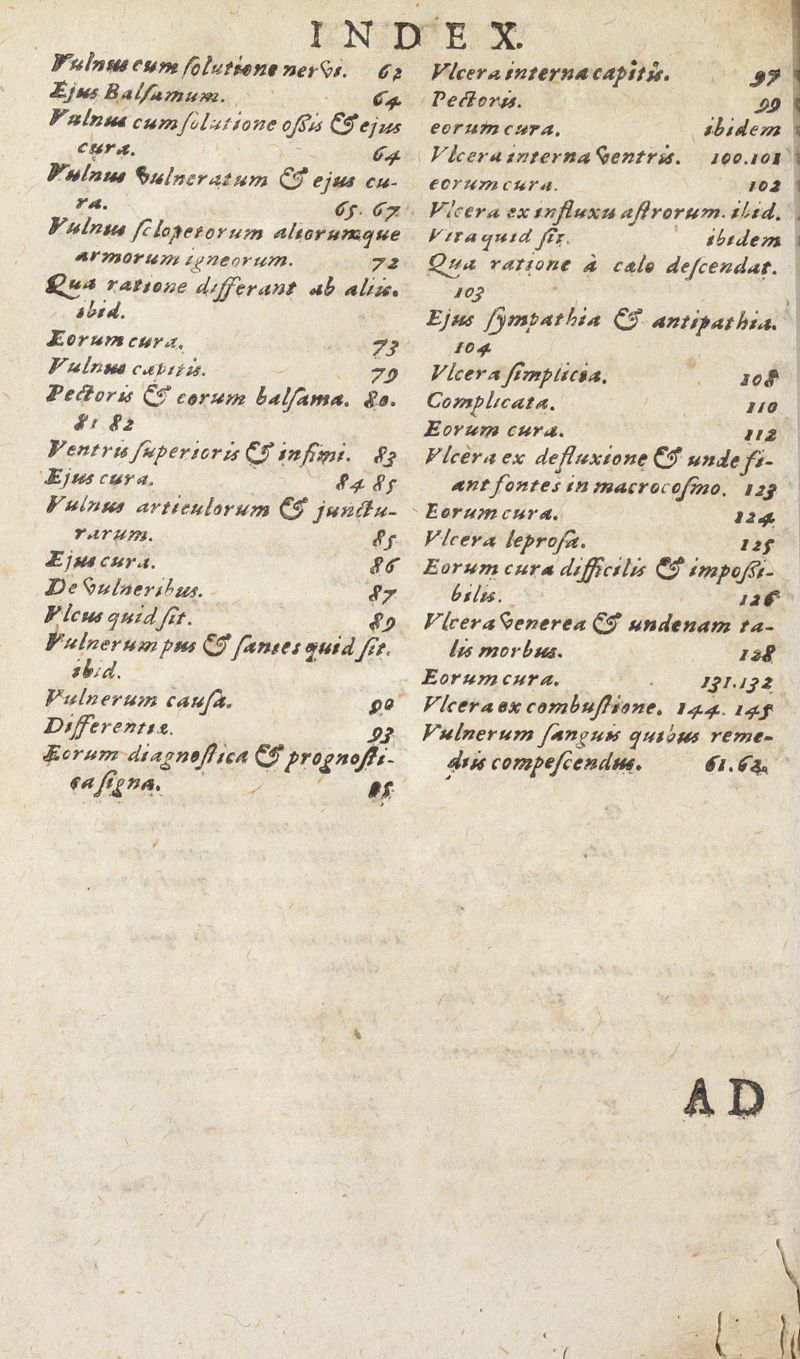 INDEX.
Vulnus cum ſolutione nervi. 62
Ejus Balſamum. 64
Vulnus cum ſolutione oſſis & ejus
cura. 64
Vulnus vulneratum & ejus cu-
ra. 65. 67
Vulnus ſclopetorum aliorumque
armorum igneorum. 72
Qua ratione differant ab aliis.
ibid.
Eorum cura. 73
Vulnus capitis. 79
Pectoris & eorum balſama. 80.
81 82
Ventris ſuperioris & infimi. 83
Ejus cura. 84 85
Vulnus articulorum & junctu-
rarum. 85
Ejus cura. 86
De vulneribus. 87
Vlcus quid ſit. 89
Vulnerum pus & ſanies quid ſit.
ibid.
Vulnerum cauſa. 90
Differentiæ. 93
Eorum diagnoſtica & prognoſti-
ca ſigna. 95
Vlcera interna capitis. 97
Pectoris. 99
eorum cura. ibidem
Vlcera interna ventris. 100.101
eorum cura. 102
Vlcera ex influxu aſtrorum. ibid.
Vita quid ſit. ibidem
Qua ratione à cælo deſcendat.
103
Ejus ſympathia & antipathia.
104
Vlcera ſimplicia. 108
Complicata. 110
Eorum cura. 112
Vlcera ex defluxione & unde fi-
ant fontes in macrocoſmo. 123
Eorum cura. 124
Vlcera leproſa. 125
Eorum cura difficilis & impoſſi-
bilis. 126
Vlcera venerea & undenam ta-
lis morbus. 128
Eorum cura. 131.132
Vlcera ex combuſtione. 144. 145
Vulnerum ſanguis quibus reme-
diis compeſcendus. 61.62.
AD